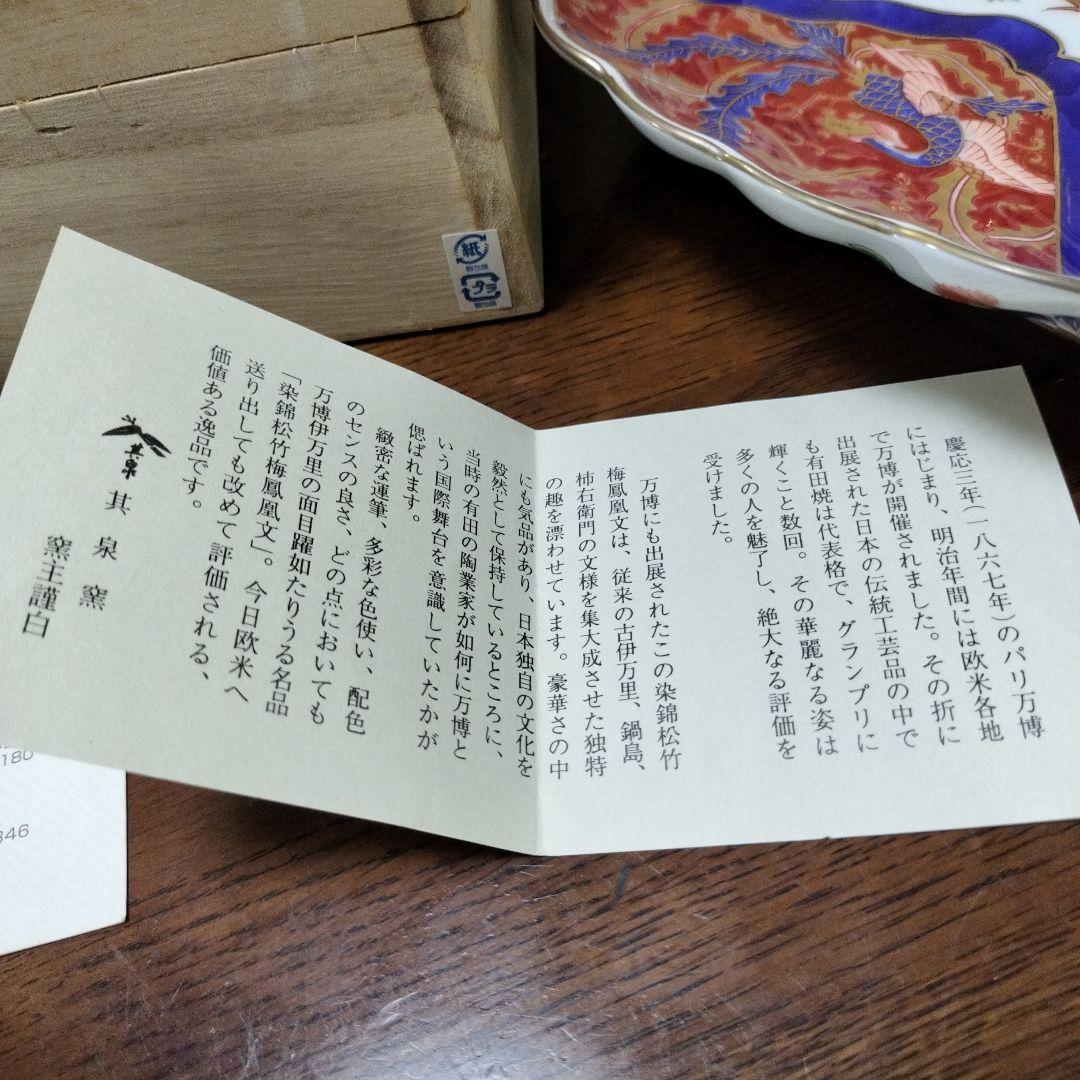 慶応三年(一八六七年)のパリ万博
にはじまり、明治年間には欧米各地
で万博が開催されました。その折に
出展された日本の伝統工芸品の中で
も有田焼は代表格で、グランプリに
輝くこと数回。その華麗なる姿は
多くの人を魅了し、絶大なる評価を
受けました。
万博にも出展されたこの染錦松竹
梅鳳凰文は、従来の古伊万里、鍋島、
柿右衛門の文様を集大成させた独特
の趣を漂わせています。豪華さの中
にも気品があり、日本独自の文化を
毅然として保持しているところに、
当時の有田の陶業家が如何に万博と
いう国際舞台を意識していたかが
偲ばれます。
緻密な運筆、多彩な色使い、配色
のセンスの良さ、どの点においても
万博伊万里の面目躍如たりうる名品
「染錦松竹梅鳳凰文」。今日欧米へ
送り出しても改めて評価される、
価値ある逸品です。
其泉
其泉窯
窯主謹白
紙
プラ
180
346